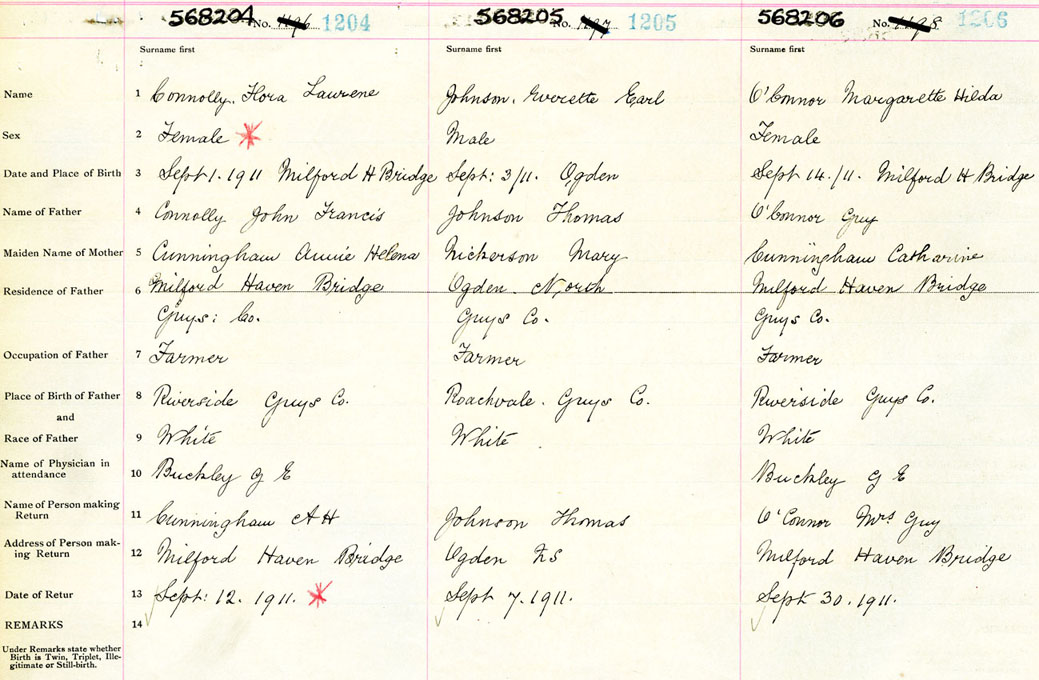 568204 No. 1204 568205 1205 568206 No. 1206
Surname first Surname first Surname first
Name 1 Connolly, Flora Laurene Johnson, Everette Earl O'Connor Margarette Hilda
Sex 2 Female Male Female
Date and Place of Birth 3 Sept 1. 1911 Milford H Bridge Sept: 3/11. Ogden Sept 14./11. Milford H Bridge
Name of Father 4 Connolly John Francis Johnson Thomas O'Connor Guy
Maiden Name of Mother 5 Cunningham Annie Helena Nickerson Mary Cunningham Catharine
Residence of Father 6 Milford Haven Bridge Ogden North Milford Haven Bridge
Guys: Co. Guys Co. Guys Co.
Occupation of Father 7 Farmer Farmer Farmer
Place of Birth of Father 8 Riverside Guys Co. Roachvale. Guys Co. Riverside Guys Co.
and
Race of Father 9 White White White
Name of Physician in
attendance 10 Buckley G E Buckley G E
Name of Person making
Return 11 Cunningham A H Johnson Thomas O'Connor Mrs Guy
Address of Person mak-
ing Return 12 Milford Haven Bridge Ogden NS Milford Haven Bridge
Date of Retur 13 Sept: 12. 1911. Sept 7. 1911. Sept 30. 1911.
REMARKS 14
Under Remarks state whether
Birth is Twin, Triplet, Ille-
gitimate or Still-birth.